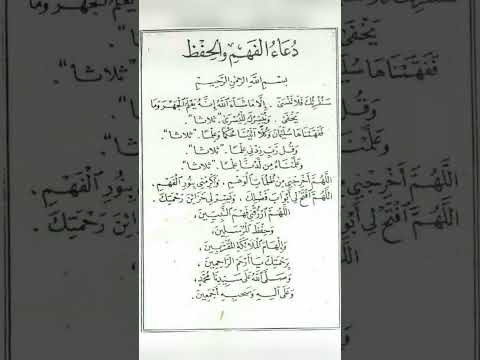 دُعَاءُ الْفَهْمِ وَالْحِفْظِ
بِسْمِ اللهِ الرَّحْمٰنِ الرَّحِيْمِ
سَنُقْرِئُكَ فَلَا تَنْسَىٰ . إِلَّا مَا شَاءَ اللهُ إِنَّهُ يَعْلَمُ الْجَهْرَ وَمَا
يَخْفَىٰ . وَنُيَسِّرُكَ لِلْيُسْرَىٰ "ثَلَاثًا".
فَفَهَّمْنَاهَا سُلَيْمَانَ وَكُلًّا آتَيْنَا حُكْمًا وَعِلْمًا . "ثَلَاثًا".
وَقُلْ رَبِّ زِدْنِي عِلْمًا . "ثَلَاثًا".
وَعَلَّمْنَاهُ مِنْ لَدُنَّا عِلْمًا . "ثَلَاثًا".
اَللّٰهُمَّ أَخْرِجْنِي مِنْ ظُلُمَاتِ الْوَهْمِ . وَأَكْرِمْنِي بِنُورِ الْفَهْمِ .
اَللّٰهُمَّ افْتَحْ لِي أَبْوَابَ فَضْلِكَ . وَانْشُرْ لِي خَزَائِنَ رَحْمَتِكَ .
اَللّٰهُمَّ ارْزُقْنِي فَهْمَ النَّبِيِّينَ ،
وَحِفْظَ الْمُرْسَلِينَ ،
وَإِلْهَامَ الْمَلَائِكَةِ الْمُقَرَّبِينَ ،
بِرَحْمَتِكَ يَا أَرْحَمَ الرَّاحِمِينَ ،
وَصَلَّى اللهُ عَلَىٰ سَيِّدِنَا مُحَمَّدٍ ،
وَعَلَىٰ آلِهِ وَصَحْبِهِ أَجْمَعِينَ .